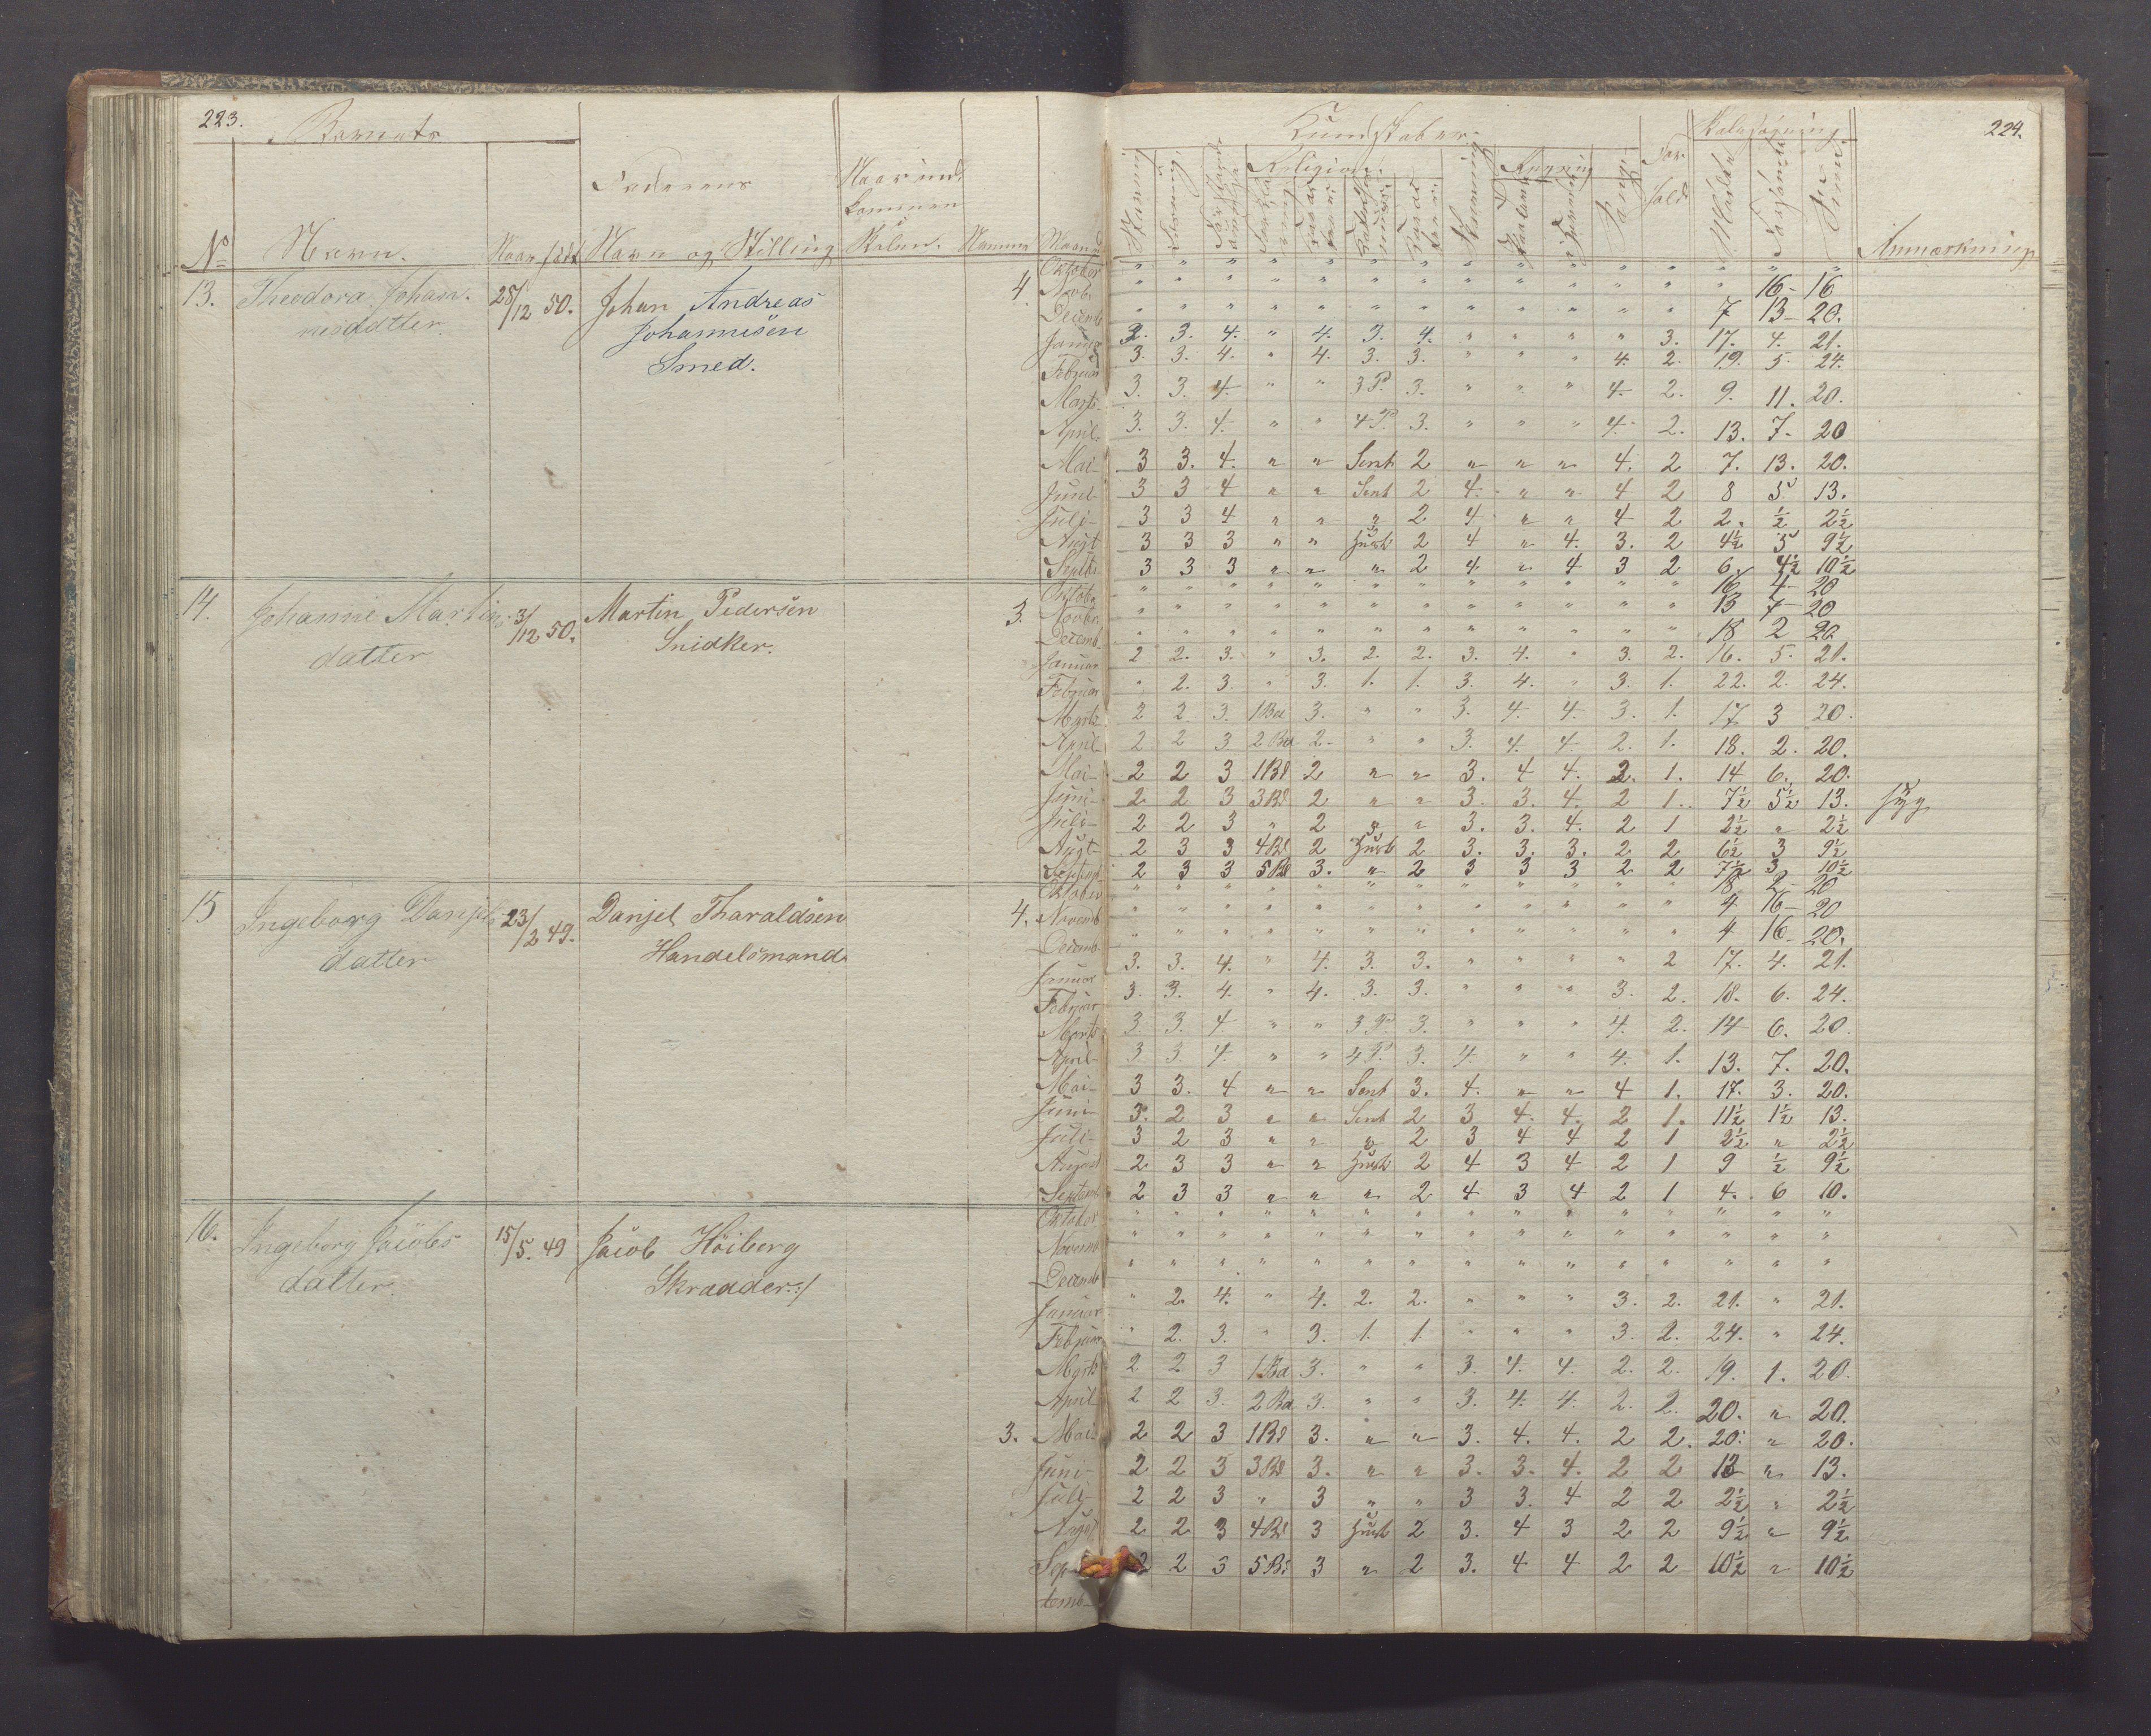 223.
Barnets
Faderens
Naar ind-
kommen
Skolen.
No
Navn.
Naar född
Navn og Stilling
Nummer
Maaned
13.
Theodora Johan-
nesdatter
28/12 50.
Johan Andreas
Johannesen
Smed.
4.
Oktober
Novb.
Decemb
Januar
Februar
Marts
April
Mai
Juni
Juli
Augt
Septbr
14.
Johanne Martins-
datter
3/12 50.
Martin Pedersen
Snidker.
3.
Oktober
Novbr.
Decemb.
Januar
Februar
Marts
April
Mai
Juni
Juli
Augt
15
Ingeborg Danjels
datter
23/2 49.
Danjel Tharaldsen
Handelsmand.
4.
Oktober
Novemb
Decemb
Januar
Februar
Marts
April
Mai
Juni
Juli
August
Septemb
16.
Ingeborg Jacobs
datter.
15/5. 49
Jacob Höiberg
Skrædder
Oktober
Novemb
Decemb
Januar
Februar
Marts
April
3. Mai
Juni
Juli
Augst
Sep
temb
224.
Kundskaber.
Religion
Regning
For-
hold
Skolesøgning
Sang
Anmærkning
" " " " " " " " " " " " " " "
" " " " " " " " " " " " " 16 - 16
" " " " " " " " " " " " 7 13 - 20.
3. 3. 4. " 4. 3. 4. " " " " 3. 17. 4. 21.
3. 3. 4. " 4. 3. 3. " " " 4. 2. 19. 5. 24.
3. 3. 4. " " 3 P. 3. " " " 4. 2. 9. 11. 20.
3. 3. 4. " " 4 P. 3. " " " 4. 2. 13. 7. 20
3 3. 4. " " Sent 2 " " " 4. 2 7. 13. 20.
3 3 4 " " Sent 2 4. " " 4 2 8 5 13.
3 3 4 " " " 2 4 " " 4 2 2. ½ 2½
3 3 3 " " Husk 2 4 " 4. 3. 2 4½ 5 9½
3 3 3 " " " 2 4 " 4 3 2 6 4½ 10½
" " " " " " " " " " " " 16 4 - 20
" " " " " " " " " " " " 13 7 - 20
" " " " " " " " " " " " 18 2 20
2 2. 3. " 3. 2. 2. 3. 4. " 3. 2. 16. 5. 21.
" 2. 3. " 3. 1. 1. 3. 4. " 3. 1. 22. 2. 24.
2 2 3. 1 Bd 3. " " 3. 4. 4. 3. 1. 17 3 20.
2 2 3 2 Bd 2. " " 3. 4. 4. 2. 1. 18. 2. 20.
2 2 3 1 Bd 2 " " 3. 4 4. 2. 1. 14 6. 20.
2 2 3 3 Bd 2 " " 3. 3. 4. 2 1. 7½ 5½ 13. syg
2 2 3 " 2 " " 3. 3. 4. 2 1 2½ " 2½
2 3 3 4 Bd 2 Husk 2 3. 3. 3. 2 2 6½ 3 9½
2 3 3 5 Bd 3. " 2 3 3 3 2 2 7½ 3 10½
" " " " " " " " " " " " 18 2 - 20
" " " " " " " " " " " " 4 16 - 20
" " " " " " " " " " " " 4 16 - 20.
3. 3. 4. " 4. 3. 3. " " " " 2 17. 4. 21.
3. 3. 4. " 4. 3. 3. " " " 3. 2. 18. 6. 24.
3 3. 4. " " 3 P. 3. " " " 4. 2. 14 6. 20.
3 3. 4. " " 4 P. 3. 4. " " 4. 1. 13. 7. 20.
3 3. 4 " " Sent 3. 4. " " 4 1. 17. 3. 20.
3. 2 3 " " Sent 2 3 4. 4. 2 1. 11½ 1½ 13.
3 2 3 " " " 2 3 4 4 2 1 2½ " 2½
2 3 3 " " Husk 2 4 3 4 2 1 9 ½ 9½
2 3 3 " " " 2 4 3 4 2 1 4. 6 10.
" " " " " " " " " " " " " " "
" " " " " " " " " " " " " " "
" " " " " " " " " " " " " " "
" 2. 4. " 4. 2. 2. " " " 3. 2. 21. " 21.
" 2. 3. " 3. 1. 1. " " " 3. 2. 24. " 24.
2 2 3 1 Bd 3. " " 3. 4. 4. 2. 2. 19. 1. 20.
2 2 3. 2 Bd 3. " " 3. 4. 4. 2. 2. 20. " 20.
2 2 3 1 Bd 3. " " 3. 4. 4. 2 2. 20. " 20.
2 2 3 3 Bd 3. " " 3. 3. 4. 2 2 13 " 13.
2 2 3 " 3 " " 3 3. 4 2 2 2½ " 2½
2 2 3 4 Bd 3 Husk 2 3. 4 3 2 2 9½ " 9½
2 2 3 5 Bd 3 " 2 3. 4 4 2 2 10½ " 10½